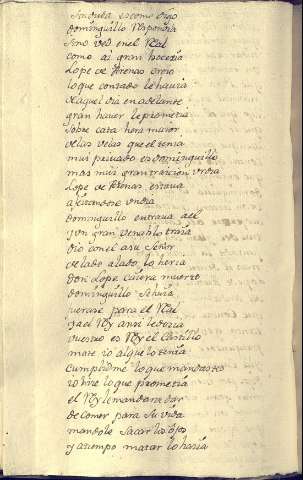 Sin duda es como digo
dominguillo Respondia
sino ved en el Real
como al gran haceria
Lope de Arenas creio
lo que contado le hauia
de aquel dia en adelante
gran hauer le prometia
sobre cata hera maior
de las velas que el tenia
mui priuado es dominguillo
mas mui gran traicion vrdia
Lope de Arenas estaua
afeitandose vn dia
dominguillo entraua a el
y vn gran venablo traia
dio con el a su Señor
de lado a lado lo heria
Don Lope caiera muerto
dominguillo se huia
fuerase para el Real
y a el Rey ansi le decia
vuestro es Rey el Castillo
mate io al que lo tenia
cumplidme lo que mandastes
io hice lo que prometia
el Rey le mandara dar
de comer para su vida
mandole sacar los ojos
y a tiempo matar lo haria